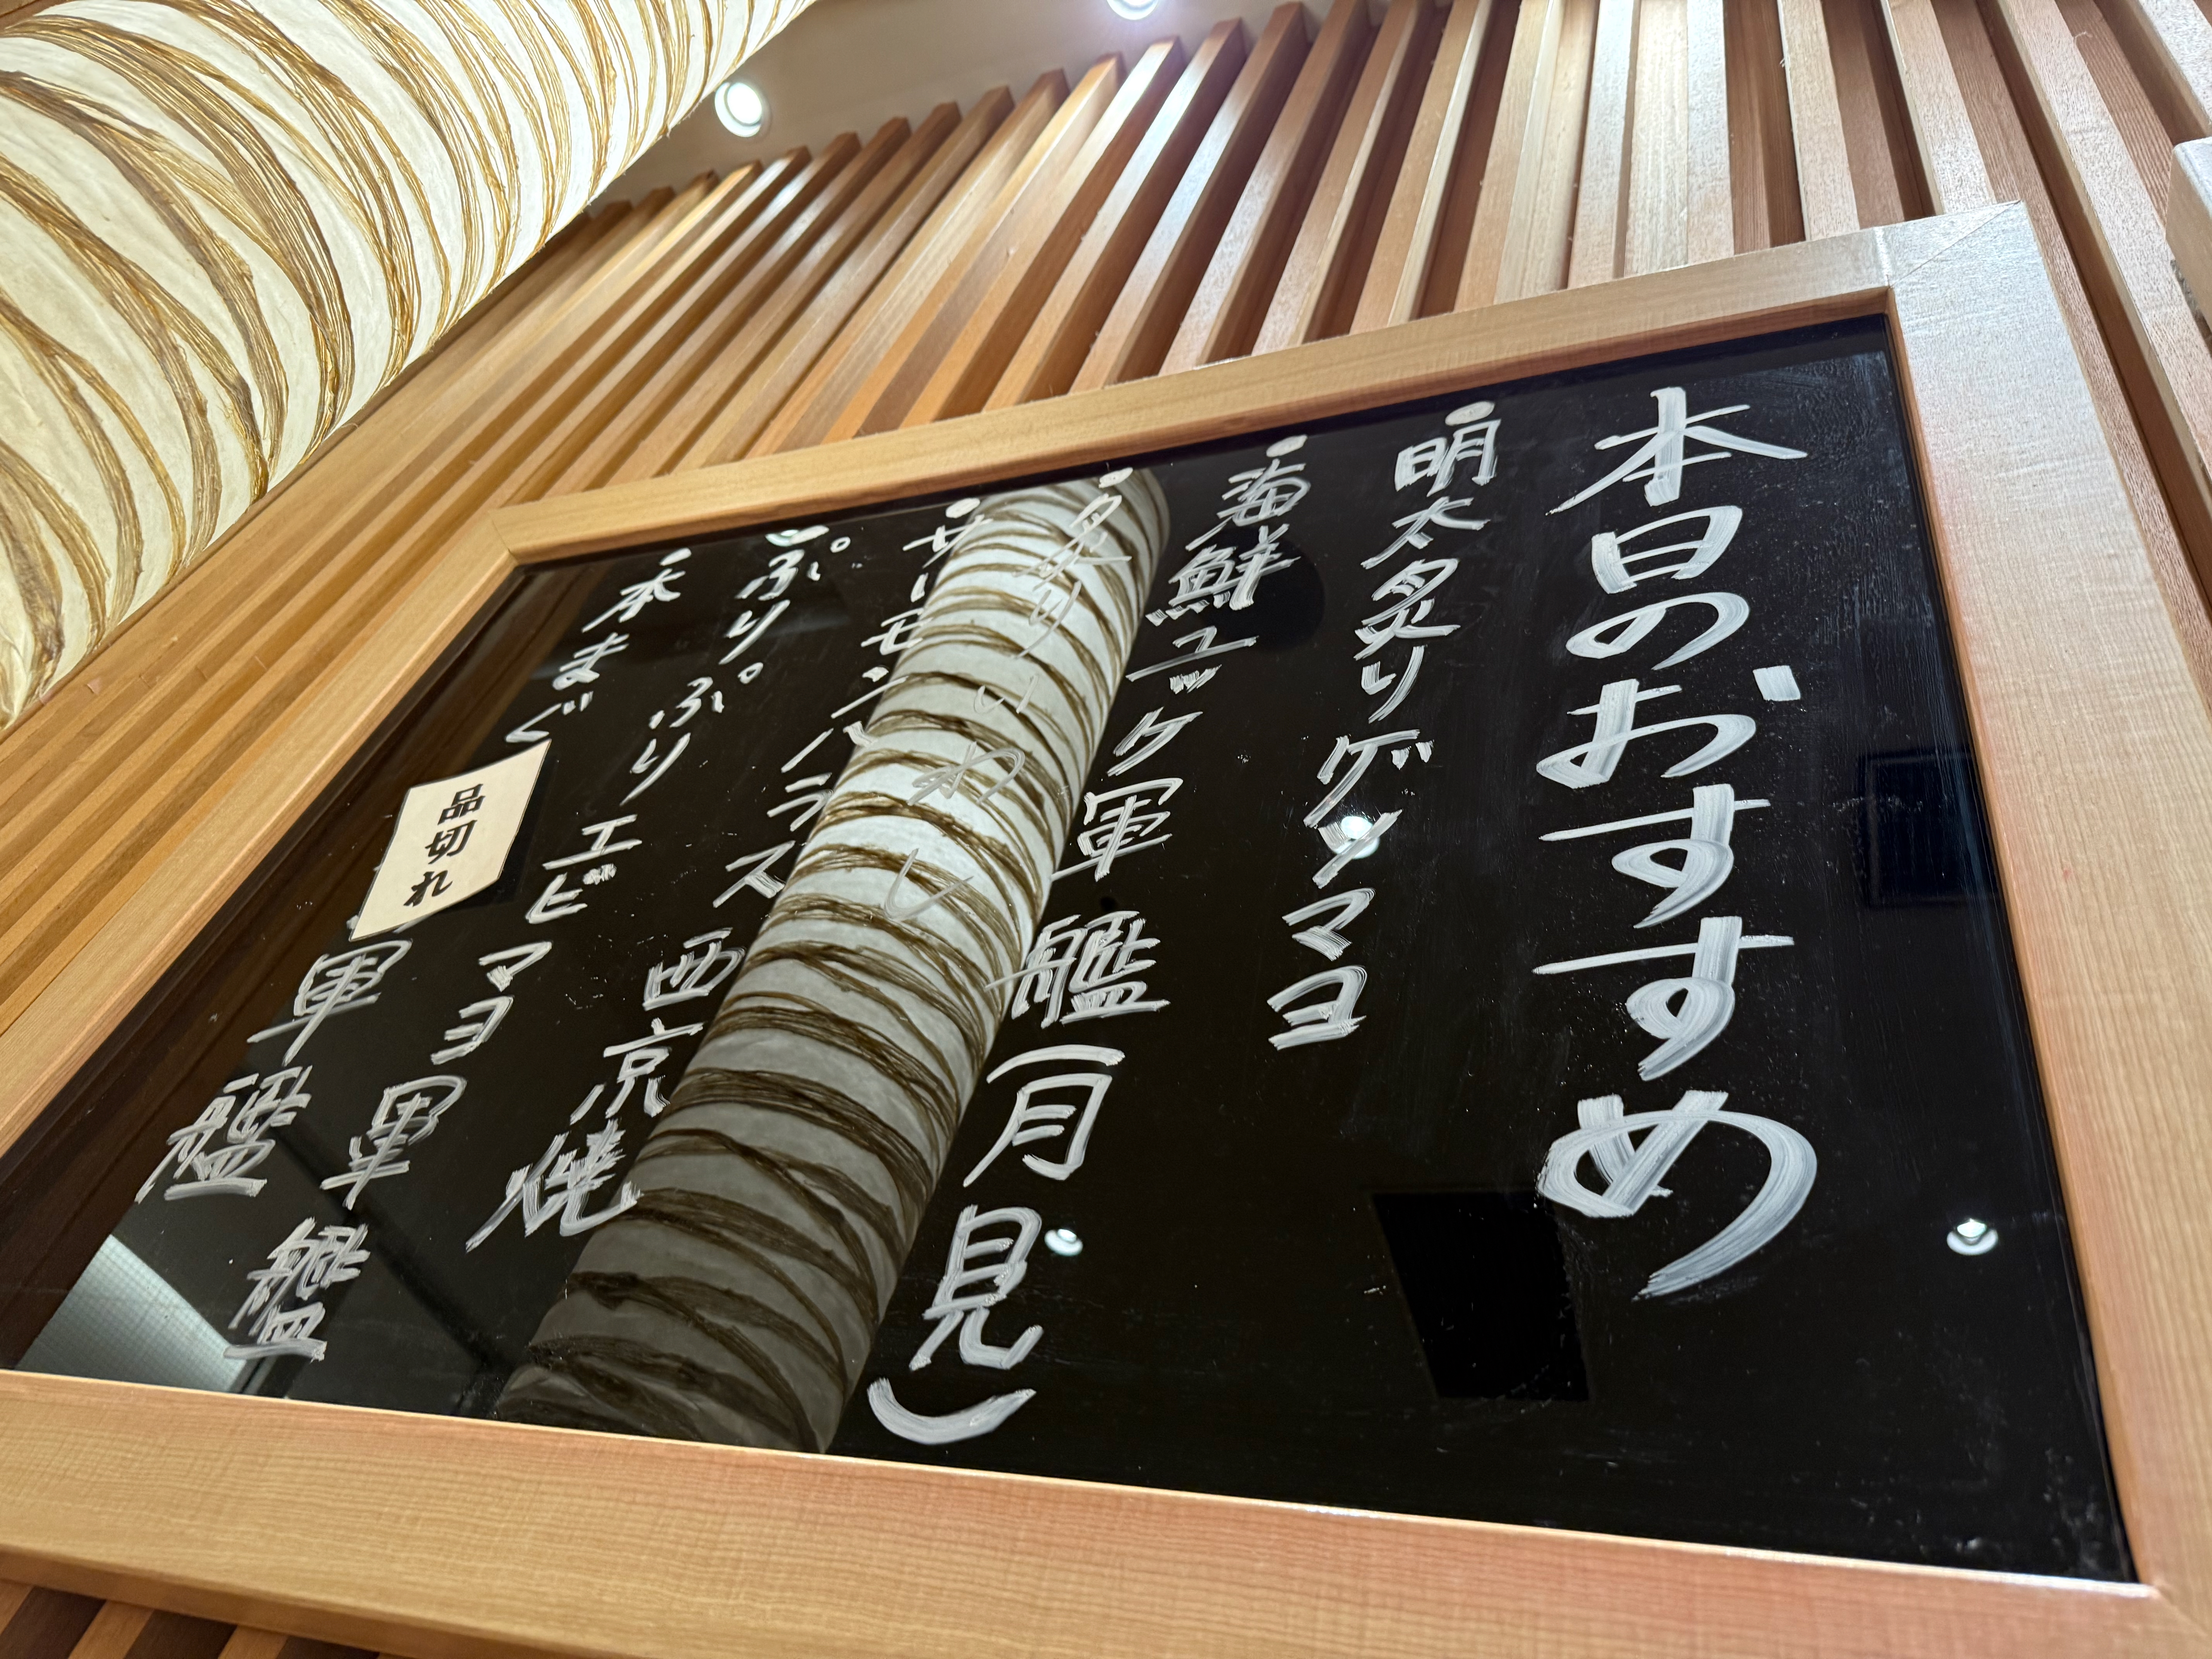 本日のおすすめ
・明太炙りゲソマヨ
・海鮮ユッケ軍艦(月見)
・炙りいわし
・サーモンハラス西京焼
・ぷりぷりエビマヨ軍艦
・本まぐ 軍艦
品切れ